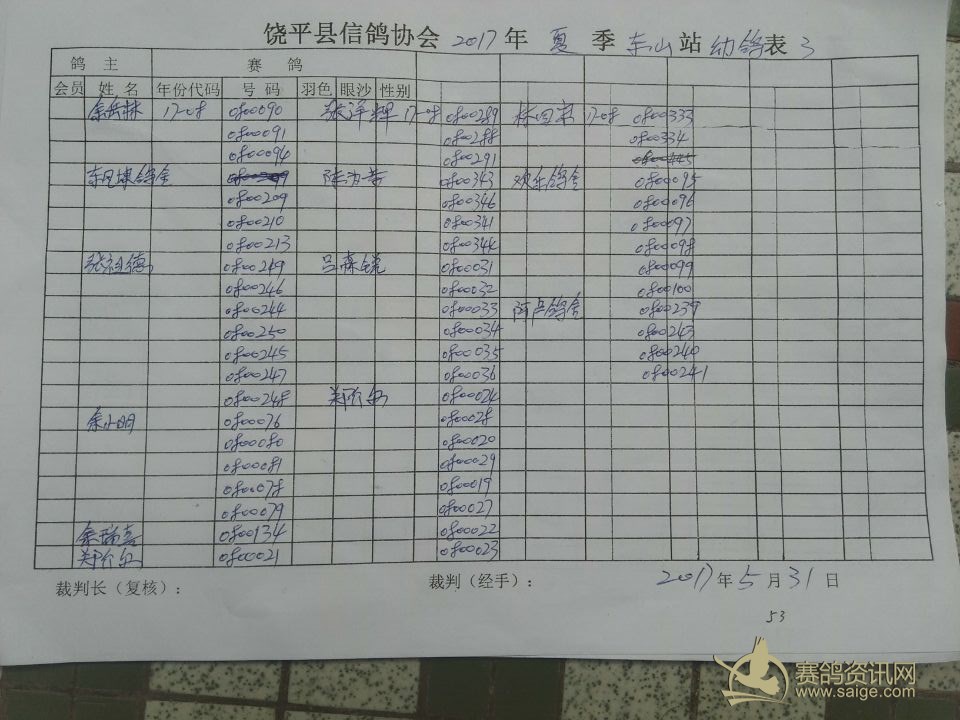 饶平县信鸽协会 2017 年 夏 季 东山 站 幼鸽 表 3
鸽 主 赛 鸽
会员 姓 名 年份代码 号 码 羽色 眼沙 性别
余岳林 17-08 0800090 张泽辉 17-08 0800289 17-08 0800333
0800091 0800288 0800334
0800094 0800291
鸽舍 0800343 欢乐鸽舍 0800095
0800209 0800346 0800096
0800210 0800341 0800097
0800213 0800344 0800098
0800249 吕森锐 0800031 0800099
0800246 0800032 0800100
0800244 0800033 鸽舍 0800239
0800250 0800034 0800243
0800245 0800035 0800240
0800247 0800036 0800241
0800248 0800024
余小明 0800076 0800028
0800080 0800020
0800081 0800029
0800078 0800019
0800079 0800027
余瑞喜 0800134 0800022
0800021 0800023
裁判长（复核）： 裁判（经手）： 2017 年 5 月 31 日
53
赛鸽资讯网
www.saige.com